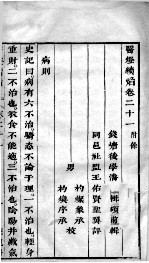 醫燈續焰卷二十一 附餘
錢塘後學潘楫 輯
同邑社盟王佑賢聖翼評
男
杓燦象承校
杓煥序承
病則
史記曰病有六不治驕恣不論於理一不治也輕身
重財二不治也衣食不能適三不治也陰陽并藏氣